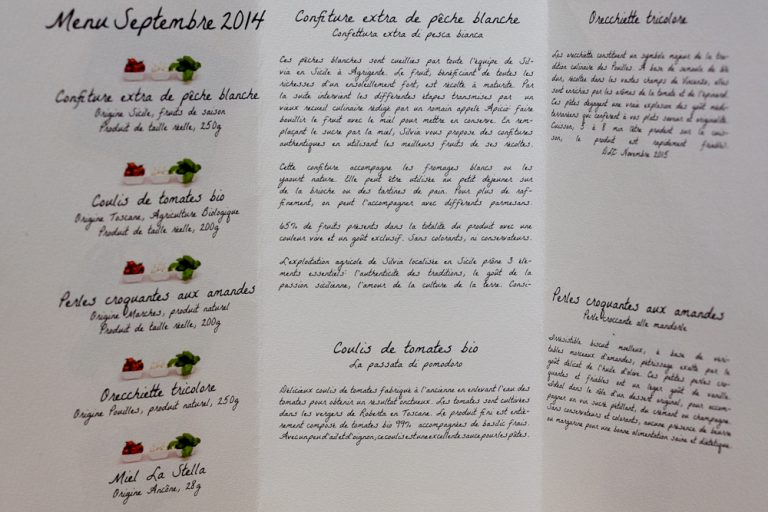 Menu Septembre 2014
Confiture extra de pêche blanche
Origine Sicile, fruits de saison
Produit de taille réelle, 250g
Coulis de tomates bio
Origine Toscane, Agriculture Biologique
Produit de taille réelle, 200g
Perles croquantes aux amandes
Origine Marches, produit naturel
Produit de taille réelle, 200g
Orecchiette tricolore
Origine Pouilles, produit naturel, 250g
Miel La Stella
Origine Ancône, 28g
Confiture extra de pêche blanche
Confettura extra di pesca bianca
Ces pêches blanches sont cueillies par toute l'équipe de Sil-
via en Sicile à Agrigente. Le fruit, bénéficiant de toutes les
richesses d'un ensoleillement fort, est récolté à maturité. Par
la suite intervient les différentes étapes transmises par un
vieux recueil culinaire rédigé par un romain appelé Apicio: faire
bouillir le fruit avec le miel pour mettre en conserve. En rem-
plaçant le sucre par la miel, Silvia vous propose des confitures
authentiques en utilisant les meilleurs fruits de ses récoltes
Cette confiture accompagne les fromages blancs ou les
yaourt nature. Elle peut être utilisée au petit déjeuner sur
de la brioche ou des tartines de pain. Pour plus de raf-
finement, on peut l'accompagner avec différents parmesans.
65% de fruits présents dans la totalité du produit avec une
couleur vive et un goût exclusif. Sans colorants, ni conservateurs.
L'exploitation agricole de Silvia localisée en Sicile prône 3 élé-
ments essentiels: l'authenticité des traditions, le goût de la
passion sicilienne, l'amour de la culture de la terre. Consi-
Coulis de tomates bio
La passata di pomodoro
Délicieux coulis de tomates fabriqué à l'ancienne en enlevant l'eau des
tomates pour obtenir un résultat onctueux. Les tomates sont cultivées
dans les vergers de Roberta en Toscane. Le produit fini est entiè-
rement composé de tomates bio 99% accompagnées de basilic frais.
Avec un peu d'ail et d'oignon, ce coulis est une excellente sauce pour les pâtes.
Orecchiette tricolore
Les orecchiette constituent un symbole majeur de la tra-
dition culinaire des Pouilles. A base de semoule de blé
dur, récoltée dans les vastes champs de Vincenzo, elles
sont enrichies par les arômes de la tomate et de l'épinard.
Ces pâtes dégagent une vraie explosion des goût médi-
terranéens qui confèrent à vos plats saveur et originalité.
Cuisson, 5 à 8 mn (être produit sur la cuis-
son, le produit est rapidement friable).
DLC Novembre 2015
Perles croquantes aux amandes
Perle croccante alle mandorle
Irrésistible biscuit moelleux, à base de véri-
tables morceaux d'amandes, pétrissage exalté par le
goût délicat de l'huile d'olive. Ces petites perles cro-
quantes et friables ont un léger goût de vanille.
Idéal dans le rôle d'un dessert original, pour accom-
pagner un vin sucré pétillant, du crémant ou champagne.
Sans conservateurs et colorants, aucune présence de beurre
ou margarine pour une bonne alimentation saine et diététique.